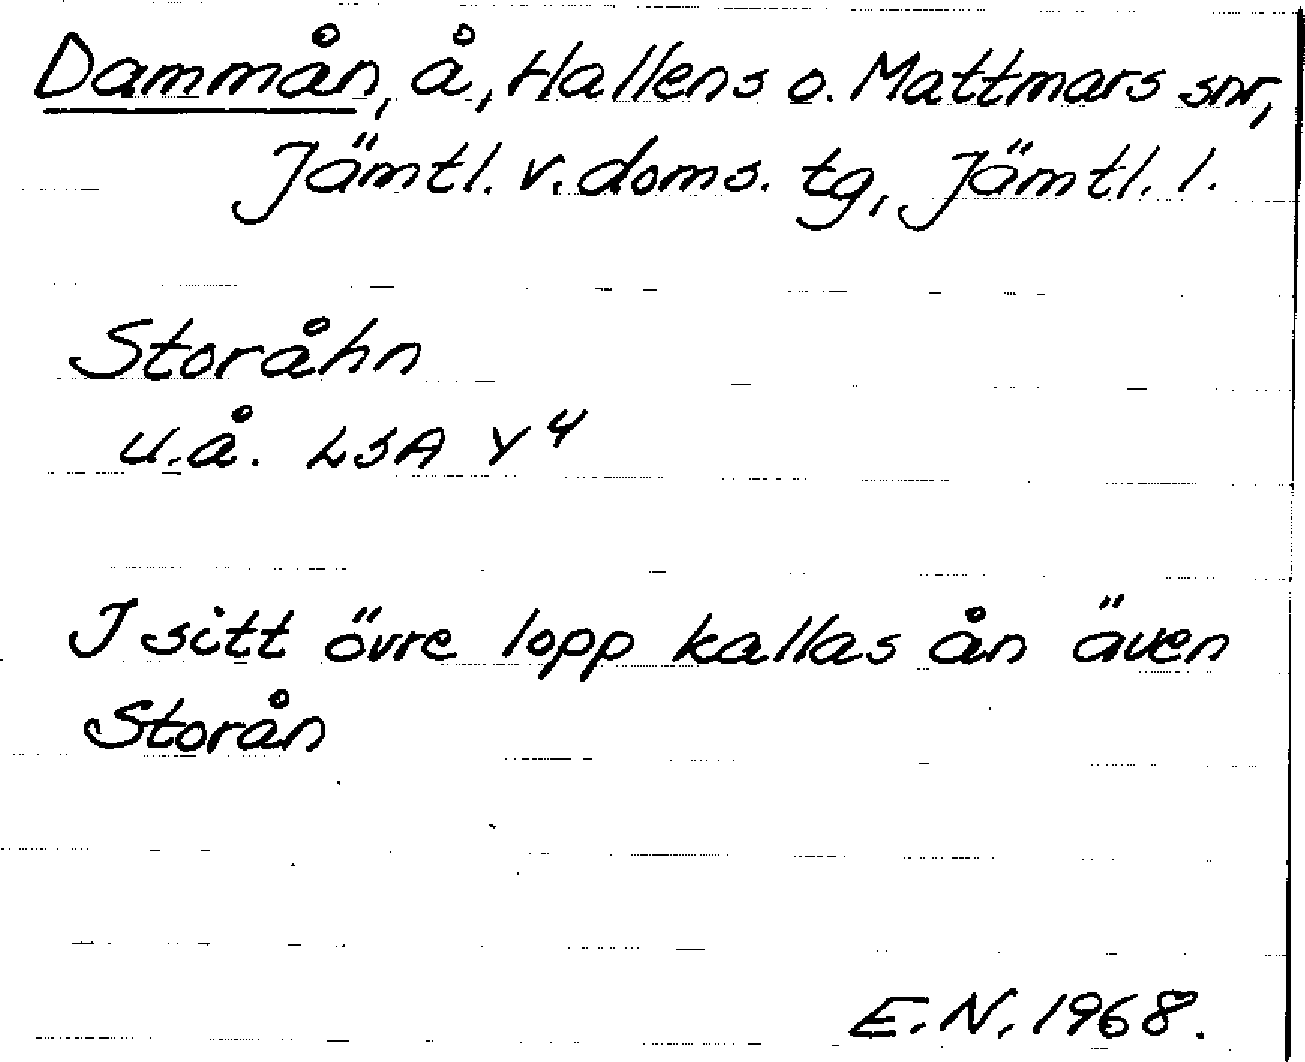 Dammån, å, Hallens o. Mattmars snr,
Jämtl. v. doms. tg, Jämtl. l.
Storåhn
u.å. LSA Y4
I sitt övre lopp kallas ån även
Storån
E.N. 1968.